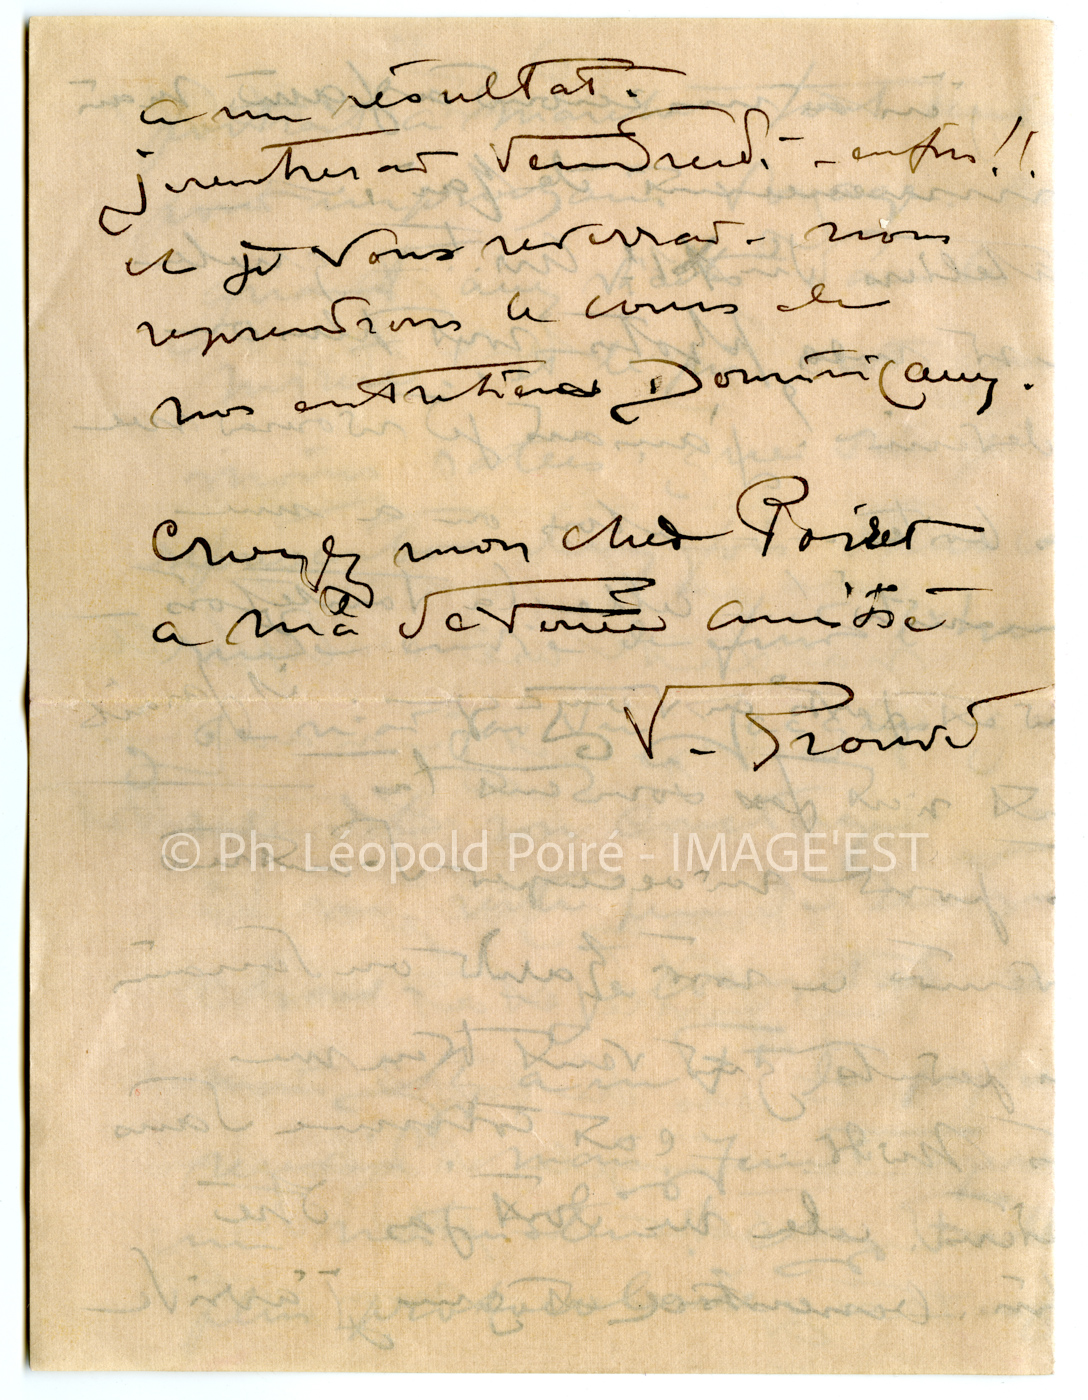 a un résultat.
je rentrerai Vendredi - enfin!!
et je vous reverrai - nous
reprendrons le cours de
nos entretiens Dominicaux.
Croyez mon cher Poiret
a ma dévouée amitié
V. Prouvé
© Ph. Léopold Poiré - IMAGE'EST